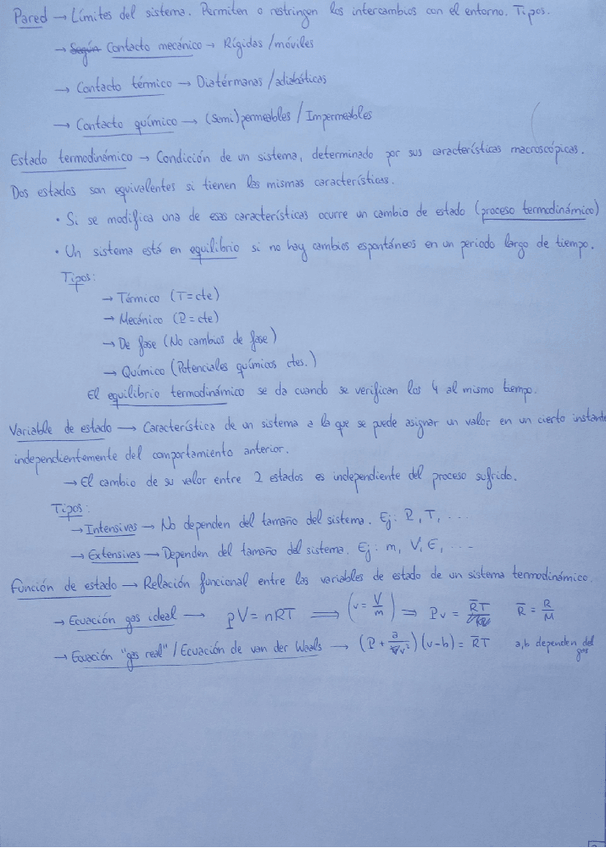 Pared → Límites del sistema. Permiten o restringen los intercambios con el entorno. Tipos.
→ Según Contacto mecánico → Rígidas / móviles
→ Contacto térmico → Diatérmanas / adiabáticas
→ Contacto químico → (Semi)permeables / Impermeables
Estado termodinámico → Condición de un sistema, determinado por sus características macroscópicas.
Dos estados son equivalentes si tienen las mismas características.
• Si se modifica una de esas características ocurre un cambio de estado (proceso termodinámico)
• Un sistema está en equilibrio si no hay cambios espontáneos en un periodo largo de tiempo.
Tipos:
→ Térmico (T=cte)
→ Mecánico (P=cte)
→ De fase (No cambios de fase)
→ Químico (Potenciales químicos ctes.)
El equilibrio termodinámico se da cuando se verifican los 4 al mismo tiempo.
Variable de estado → Característica de un sistema a la que se puede asignar un valor en un cierto instante
independientemente del comportamiento anterior.
→ El cambio de su valor entre 2 estados es independiente del proceso sufrido.
Tipos:
→ Intensivas → No dependen del tamaño del sistema. Ej: P, T, ...
→ Extensivas → Dependen del tamaño del sistema. Ej: m, V, E, ...
Función de estado → Relación funcional entre las variables de estado de un sistema termodinámico.
→ Ecuación gas ideal → pV = nRT ⟹ (v = V/m) ⟹ Pv = R̅T R̅ = R/M
→ Ecuación "gas real" / Ecuación de van der Waals → (P + a/v²)(v-b) = R̅T a,b dependen del
gas